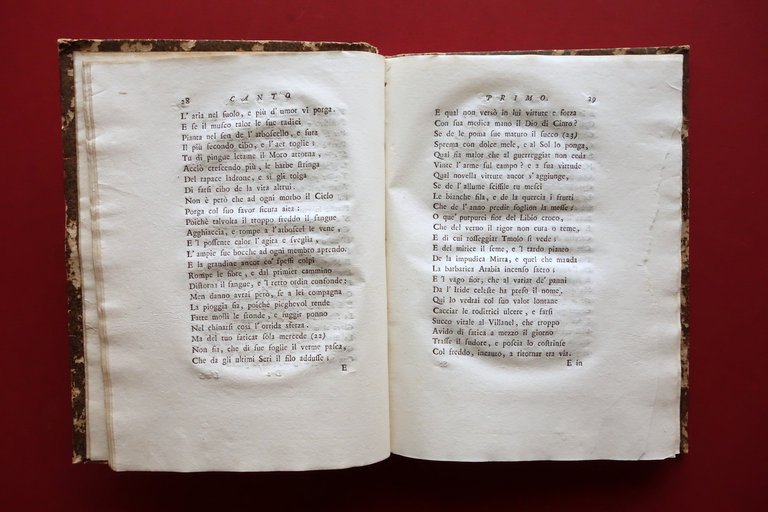 28 CANTO
L' aria nel suolo, e più d' umor vi porga.
E se il musco talor le sue radici
Pianta nel sen de l' arboscello, e fura
Il più secondo cibo, e l' aer toglie;
Tu di pingue letame il Moro attorna,
Acciò crescendo più, le barbe stringa
Del rapace ladrone, e si gli tolga
Di farsi cibo de la vita altrui.
Non è però che ad ogni morbo il Cielo
Porga col suo favor sicura aita:
Poichè talvolta il troppo freddo il sangue
Agghiaccia, e rompe a l' arboscel le vene,
E 'l possente calor l' agita e sveglia,
E l' ampie sue bocche ad ogni membro aprendo.
E la grandine ancor co' spessi colpi
Rompe le fibre, e dal primier cammino
Distorna il sangue, e 'l retto ordin confonde:
Men danno avrai però, se a lei compagna
La pioggia sia, poichè pieghevol rende
Fatte molli le fronde, e fuggir ponno
Nel chinarsi così l' orrida sferza.
Ma del tuo faticar sola mercede (22)
Non sia, che di sue foglie il verme pasca,
Che da gli ultimi Seri il filo addusse;
E
PRIMO. 29
E qual non versò in lui virtute e forza
Con sua medica mano il Dio di Cinto?
Se de le poma sue maturo il succo (23)
Sprema con dolce mele, e al Sol lo ponga,
Qual fia malor che al guerreggiar non ceda
Vinte l' arme sul campo? e a sua virtude
Qual novella virtute ancor s' aggiunge,
Se de l' allume scissile tu mesci
Le bianche fila, e de la quercia i frutti
Che de l' anno predir soglion la messe:
O que' purpurei fior del Libio croco,
Che del verno il rigor non cura o teme,
E di cui rosseggiar Tmolo si vede:
E del mirice il seme, e 'l tardo pianto
De la impudica Mirra, e quel che manda
La barbarica Arabia incenso sacro;
E 'l vago fior, che al variar de' panni
Da l' Iride celeste ha preso il nome.
Qui lo vedrai col suo valor lontane
Cacciar le roditrici ulcere, e farsi
Succo vitale al Villanel, che troppo
Avido di fatica a mezzo il giorno
Trasse il sudore, e poscia lo costrinse
Col freddo, incauto, a ritornar tra via.
E in